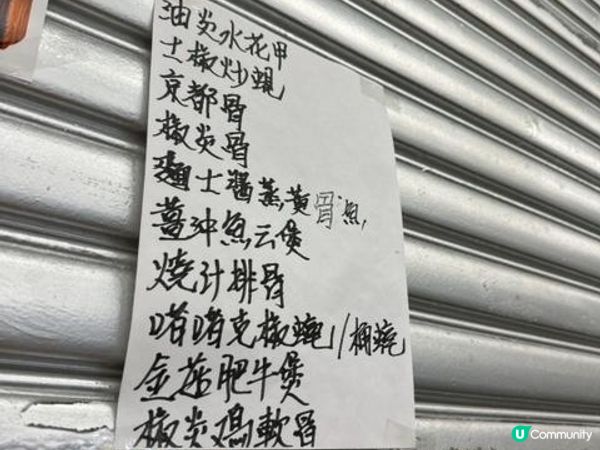 油炎水花甲
士椒炒蜆
京都骨
椒炎骨
麵士醬蒸黃骨魚
薑冲魚云煲
燒汁排骨
啫啫克椒蟶/椒蟶
金菇肥牛煲
椒炎鸡軟骨
U Community